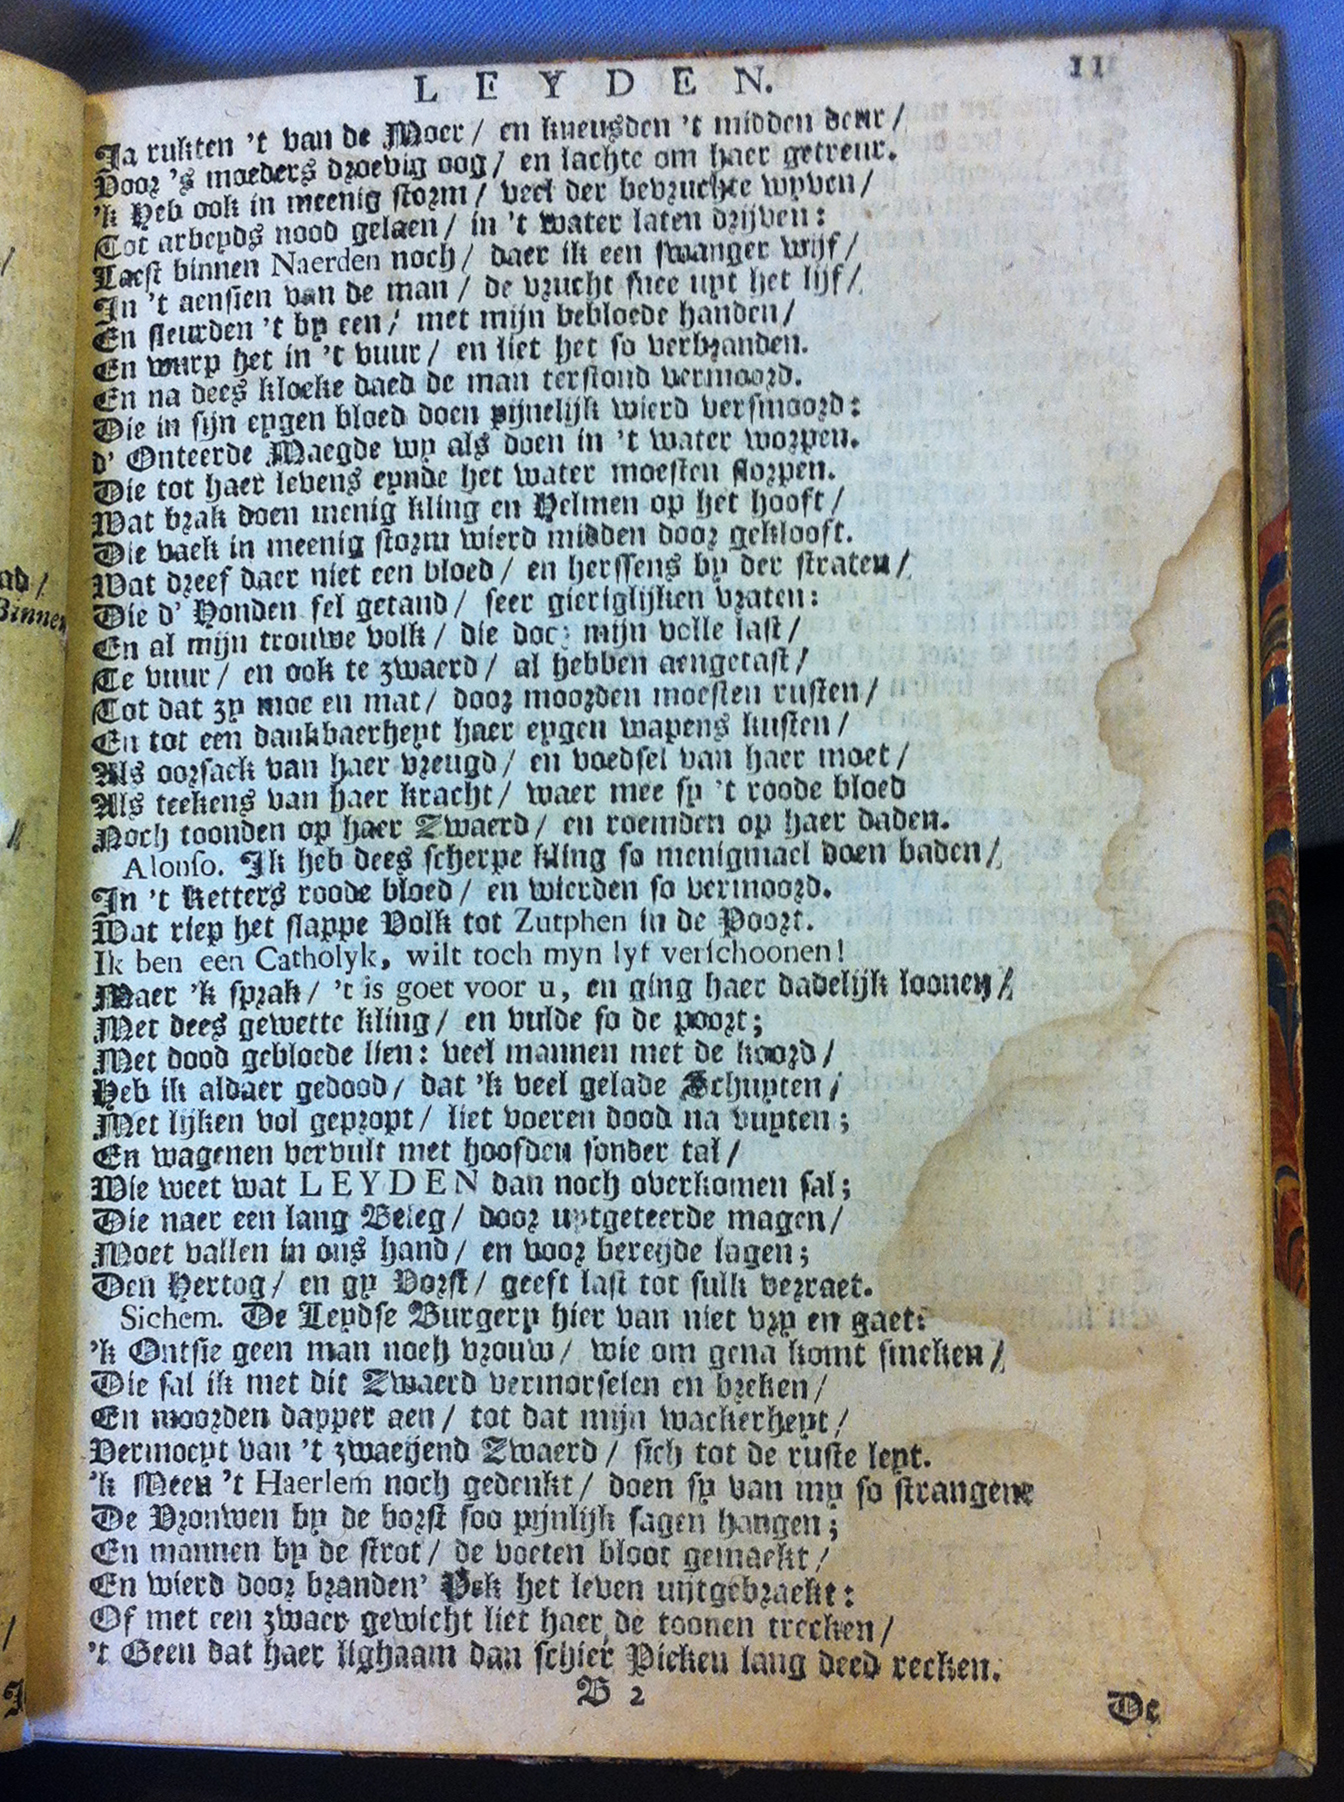 LEYDEN. 11
Ja rukten 't van de Moer / en kneusden 't midden deur /
Voor 's moeders droevig oog / en lachte om haer getreur.
'k Heb ook in meenig storm / veel der bevruchte wyven /
Tot arbeyds nood gelaen / in 't water laten drijven:
Laest binnen Naerden noch / daer ik een swanger wijf /
In 't aensien van de man / de vrucht snee uyt het lijf /
En sleurden 't by een / met mijn bebloede handen /
En wurp het in 't vuur / en liet het so verbranden.
En na dees kloeke daed de man terstond vermoord.
Die in sijn eygen bloed doen pijnelijk wierd versmoord:
d' Onteerde Maegde wy als doen in 't water worpen.
Die tot haer levens eynde het water moesten slorpen.
Wat brak doen menig kling en Helmen op het hooft /
Die vaek in meenig storm wierd midden door geklooft.
Wat dreef daer niet een bloed / en herssens by der straten /
Die d' Honden fel getand / seer gieriglijken vraten:
En al mijn trouwe volk / die doe; mijn volle last /
Te vuur / en ook te zwaerd / al hebben aengetast /
Tot dat zy moe en mat / door moorden moesten rusten /
En tot een dankbaerheyt haer eygen wapens kusten /
Als oorsaek van haer vreugd / en voedsel van haer moet /
Als teekens van haer kracht / waer mee sy 't roode bloed
Noch toonden op haer Zwaerd / en roemden op haer daden.
Alonso. Ik heb dees scherpe kling so menigmael doen baden /
In 't Ketters roode bloed / en wierden so vermoord.
Wat riep het slappe Volk tot Zutphen in de Poort.
Ik ben een Catholyk, wilt toch myn lyf verschoonen!
Maer 'k sprak / 't is goet voor u, en ging haer dadelijk loonen /
Met dees gewette kling / en vulde so de poort;
Met dood gebloede lien: veel mannen met de koord /
Heb ik aldaer gedood / dat 'k veel gelade Schuyten /
Met lijken vol gepropt / liet voeren dood na buyten;
En wagenen vervult met hoofden sonder tal /
Wie weet wat LEYDEN dan noch overkomen sal;
Die naer een lang Beleg / door uytgeteerde magen /
Moet vallen in ons hand / en voor bereyde lagen;
Den Hertog / en gy Vorst / geeft last tot sulk verraet.
Sichem. De Leydse Burgery hier van niet vry en gaet:
'k Ontsie geen man noch vrouw / wie om gena komt smeken /
Die sal ik met dit Zwaerd vermorselen en breken /
En moorden dapper aen / tot dat mijn wackerheyt /
Vermoeyt van 't zwaeyend Zwaerd / sich tot de ruste leyt.
'k Meen 't Haerlem noch gedenkt / doen sy van my so strangene
De Vrouwen by de borst soo pijnlijk sagen hangen;
En mannen by de strot / de voeten bloot gemaekt /
En wierd door branden' Pek het leven uijtgebraekt:
Of met een zwaer gewicht liet haer de toonen trecken /
't Geen dat haer lighaam dan schier Pieken lang deed recken.
B 2
De
ad /
Binnen